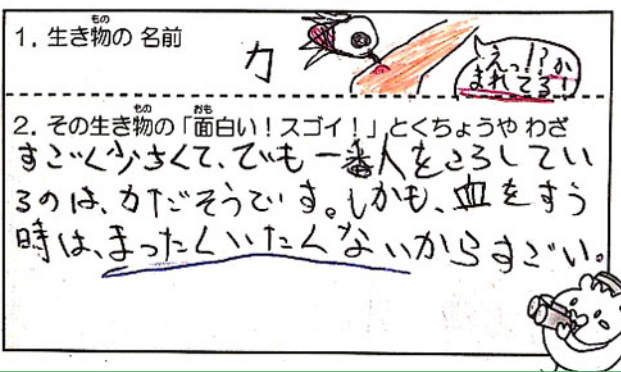 1. 生き物の 名前
もの
カ
えっ!?か
まれてる!
2. その生き物の「面白い!スゴイ!」とくちょうや わざ
もの おも
すごく少さくて、でも一番人をころしてい
るのは、カだそうです。しかも、血をすう
時は、まったくいたくないからすごい。